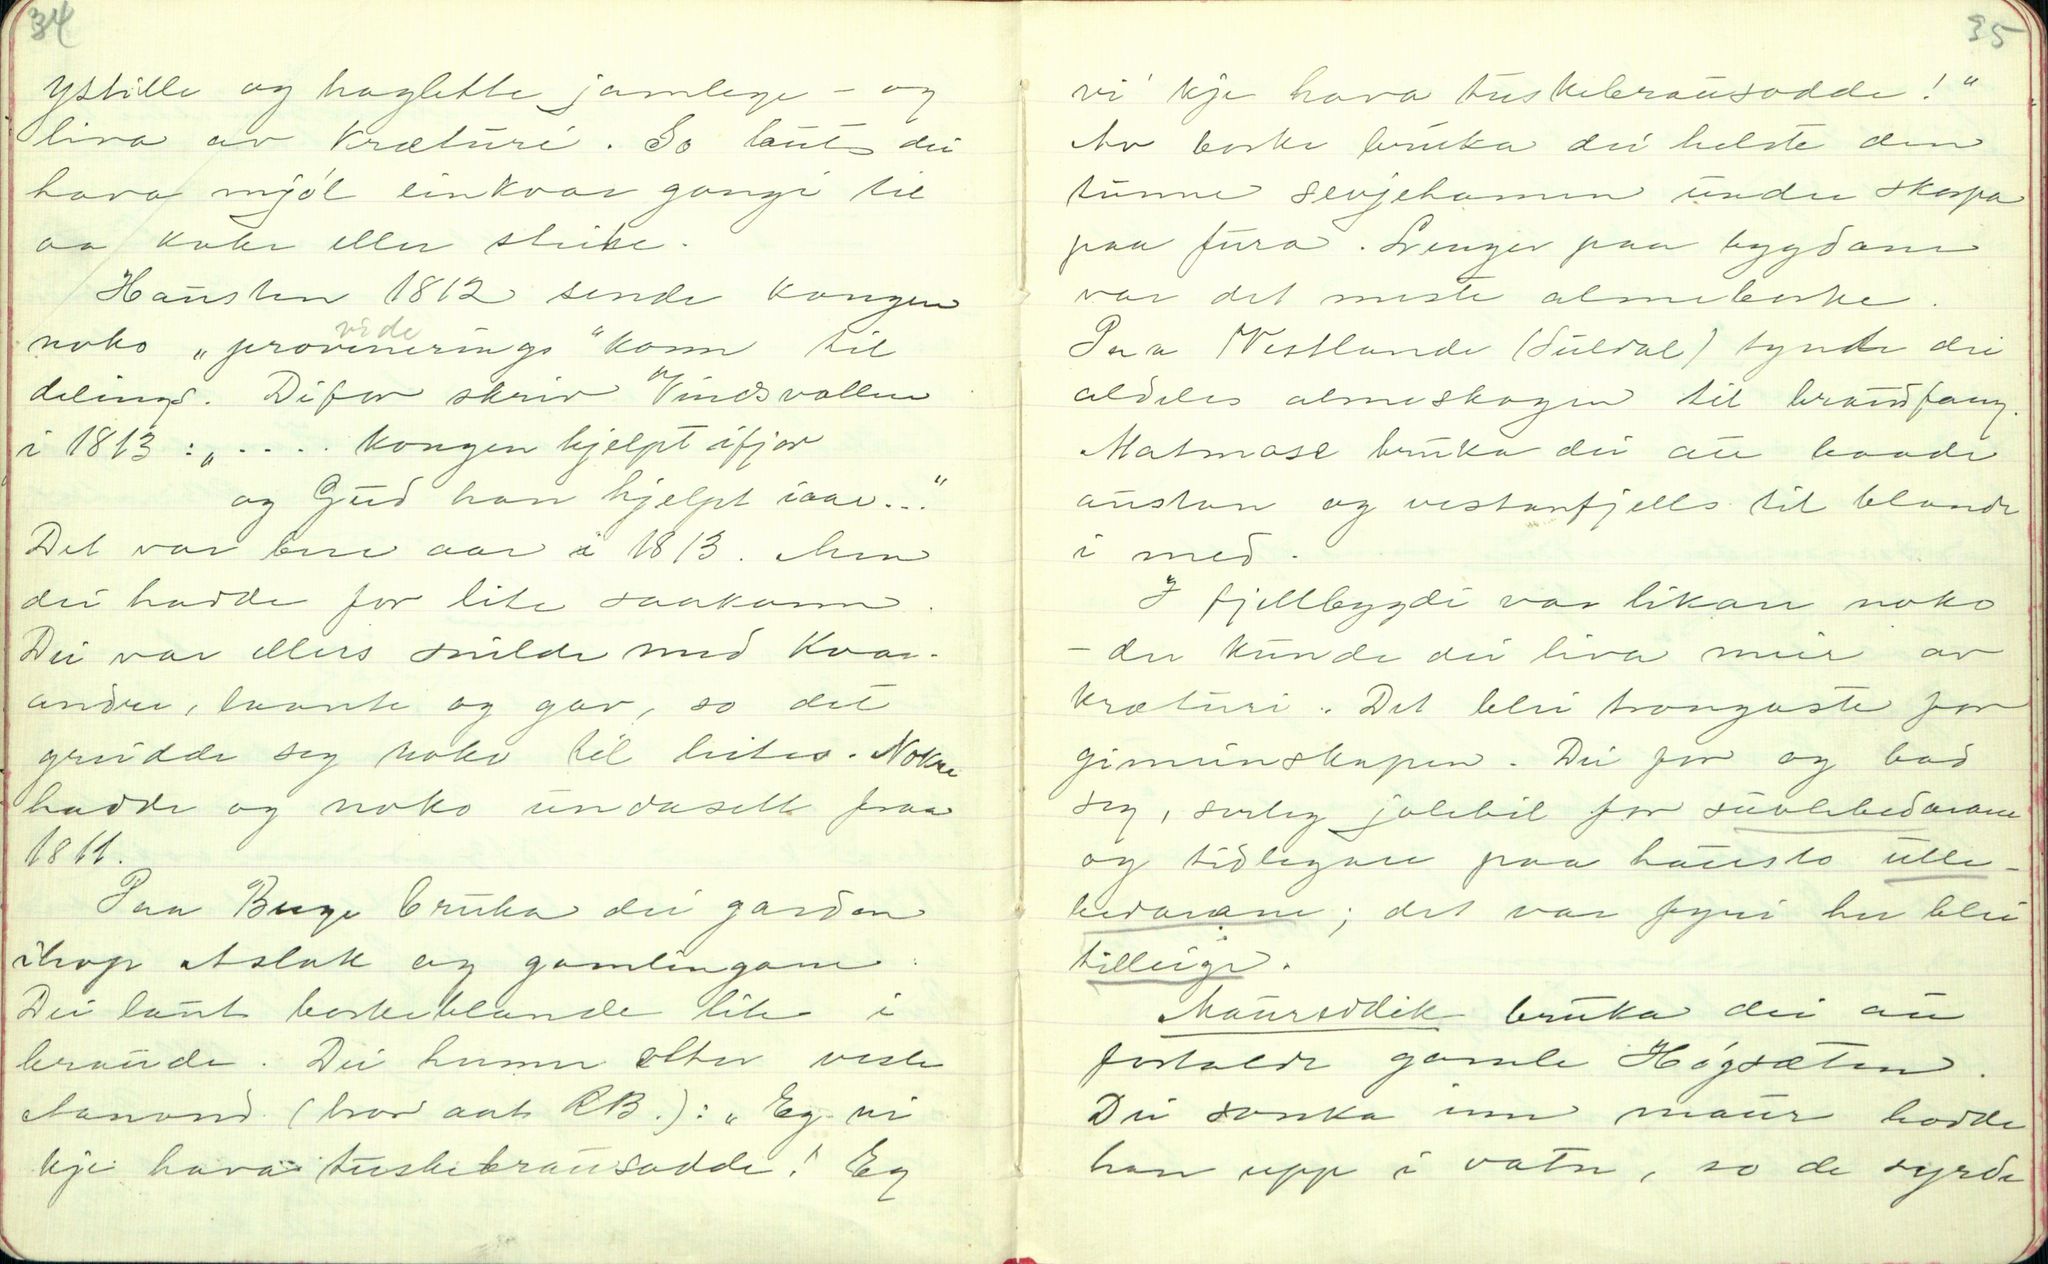 34
ystille og hoglette jamlege - og
liva av krætúri. So laut dei
hava mjøl einkvar gongi til
aa koke eller steike.
Hausten 1812 sende kongen
noko „provineringskonn" til
vide
deling. Difor skriv Vindsvollen
i 1813: „.... kongen hjelpt ifjor
og Gud han hjelpt iaar..."
Det var bra aar i 1813. Men
dei hadde for lite saakonn.
Dei var ellers snilde med kvar-
andre, laante og gav, so det
greidde seg noko til leites. Nokre
hadde og noko undasett fraa
1811.
Paa Buge bruka dei garden
ihop Aslak og gamlingane.
Dei laut borkeblande lite i
braude. Dei humra etter vesle
Aanond (bror aat RB.): „Eg vi
kje hava tuskebrausodde! Eg
35
vi kje hava tuskebrausodde!"
Av borke bruka dei helste den
tunne sevjehamen under skorpa
paa fura. Lenger paa bygdane
var det meste almeborke.
Paa Vestlande (Suldal) tynte dei
aldeles almeskogen til braudfang.
Matmose bruka dei au baade
austan og vestanfjells til blande
i med.
I fjellbygdi var likare noko
- der kunde dei liva meir av
krætúri. Det blei trongaste for
gimeinskapen. Dei for og bad
seg, serleg jolebil for suvlebedarane
og tidlegare paa hausto ulle-
bedarane; det var fyri her blei
tilleigi.
Maureddik bruka dei au
fortalde gamle Høgsæten.
Dei sonka inn maur hadde
han upp i vatn, so de syrde